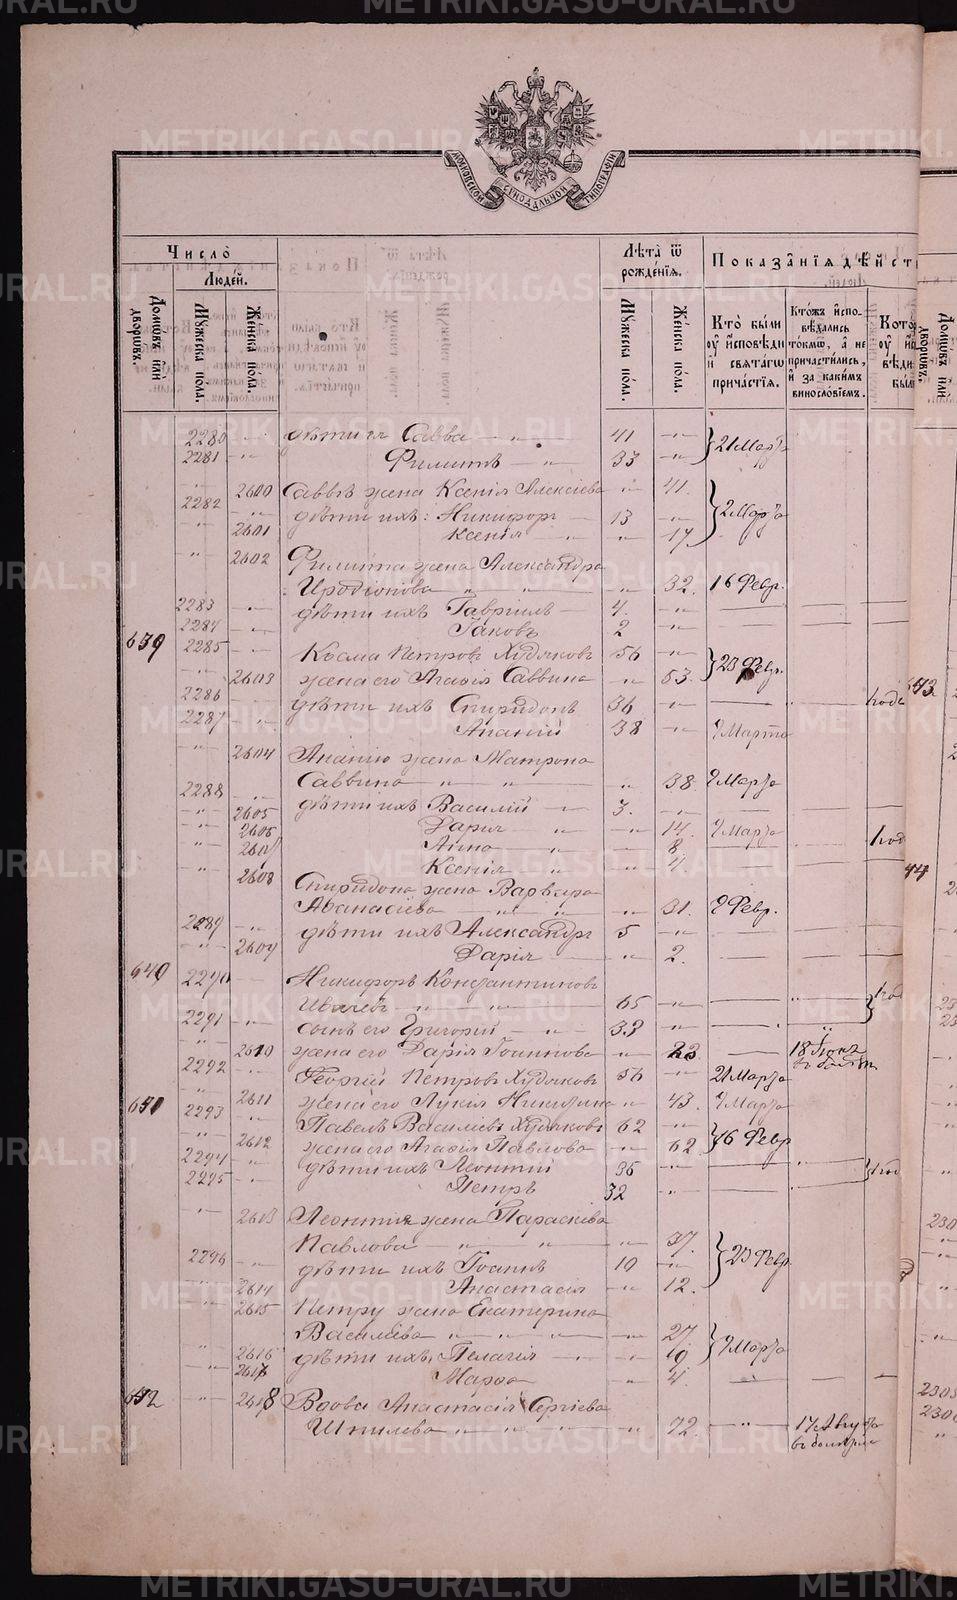 МОСКОВСКОЙ СѴНОДАЛЬНОЙ ТИПОГРАФІИ
Число̀
Людей.
Домѡвъ или дворѡвъ.
Мꙋжеска пола.
Женска пола.
Лѣта ѿ рожденїѧ.
Мꙋжеска пола.
Женска пола.
Показанїѧ дѣйст
Кто были оу исповѣди и свѧтагѡ причастїѧ.
Ктожъ исповѣдались токмѡ, а не причастились, и за какимъ винословїемъ.
Домѡвъ или дворѡвъ.
2280 дѣти ея Савва 41 21 Марта
2281 Филиппъ 33
2600 Саввы жена Ксенія Алексіева 41
2282 дѣти ихъ: Никифоръ 13 2 Марта
2601 Ксенія 17
2602 Филиппа жена Александра
Иродіонова 32. 16 Февр.
2283 дѣти ихъ Гавріилъ 4.
2284 Іаковъ 2
639 2285 Косма Петровъ Худяковъ 56
2603 жена его Агафія Саввина 53. 23 Февр.
2286 дѣти ихъ Спиридонъ 36
2287 Ананій 38 9 Марта
2604 Ананію жена Матрона
Саввина 38. 9 Марта
2288 дѣти ихъ Василій 3.
2605 Дарія 14. 9 Марта
2606 Анна 8
2607 Ксенія
2608 Спиридона жена Варвара
Афанасіева 31. 9 Февр.
2289 дѣти ихъ Александръ 5
2609 Дарія 2.
640 2290 Никифоръ Константиновъ
65
2291 сынъ его Григорій 33
2610 жена его Дарія 23 18
2292 Георгій Петровъ Худяковъ 56 21 Марта
2611 жена его Лукія 43. 9 Марта
641 2293 Павелъ Васильевъ Худяковъ 62
2612 жена его Агафія Павлова 62 16 Февр
2294 дѣти ихъ Леонтій 36
2295 Петръ 32
2613 Леонтія жена Параскева
Павлова 37. 23 Февр.
2296 дѣти ихъ Іоаннъ 10
2614 Анастасія 12.
2615 Петру жена Екатерина
Васильева 27 9 Марта
2616 дѣти ихъ, Пелагія 10
2617 Марфа 4.
642 2618 Вдова Анастасія Сергіева
Шипилева 72. 17 Августа